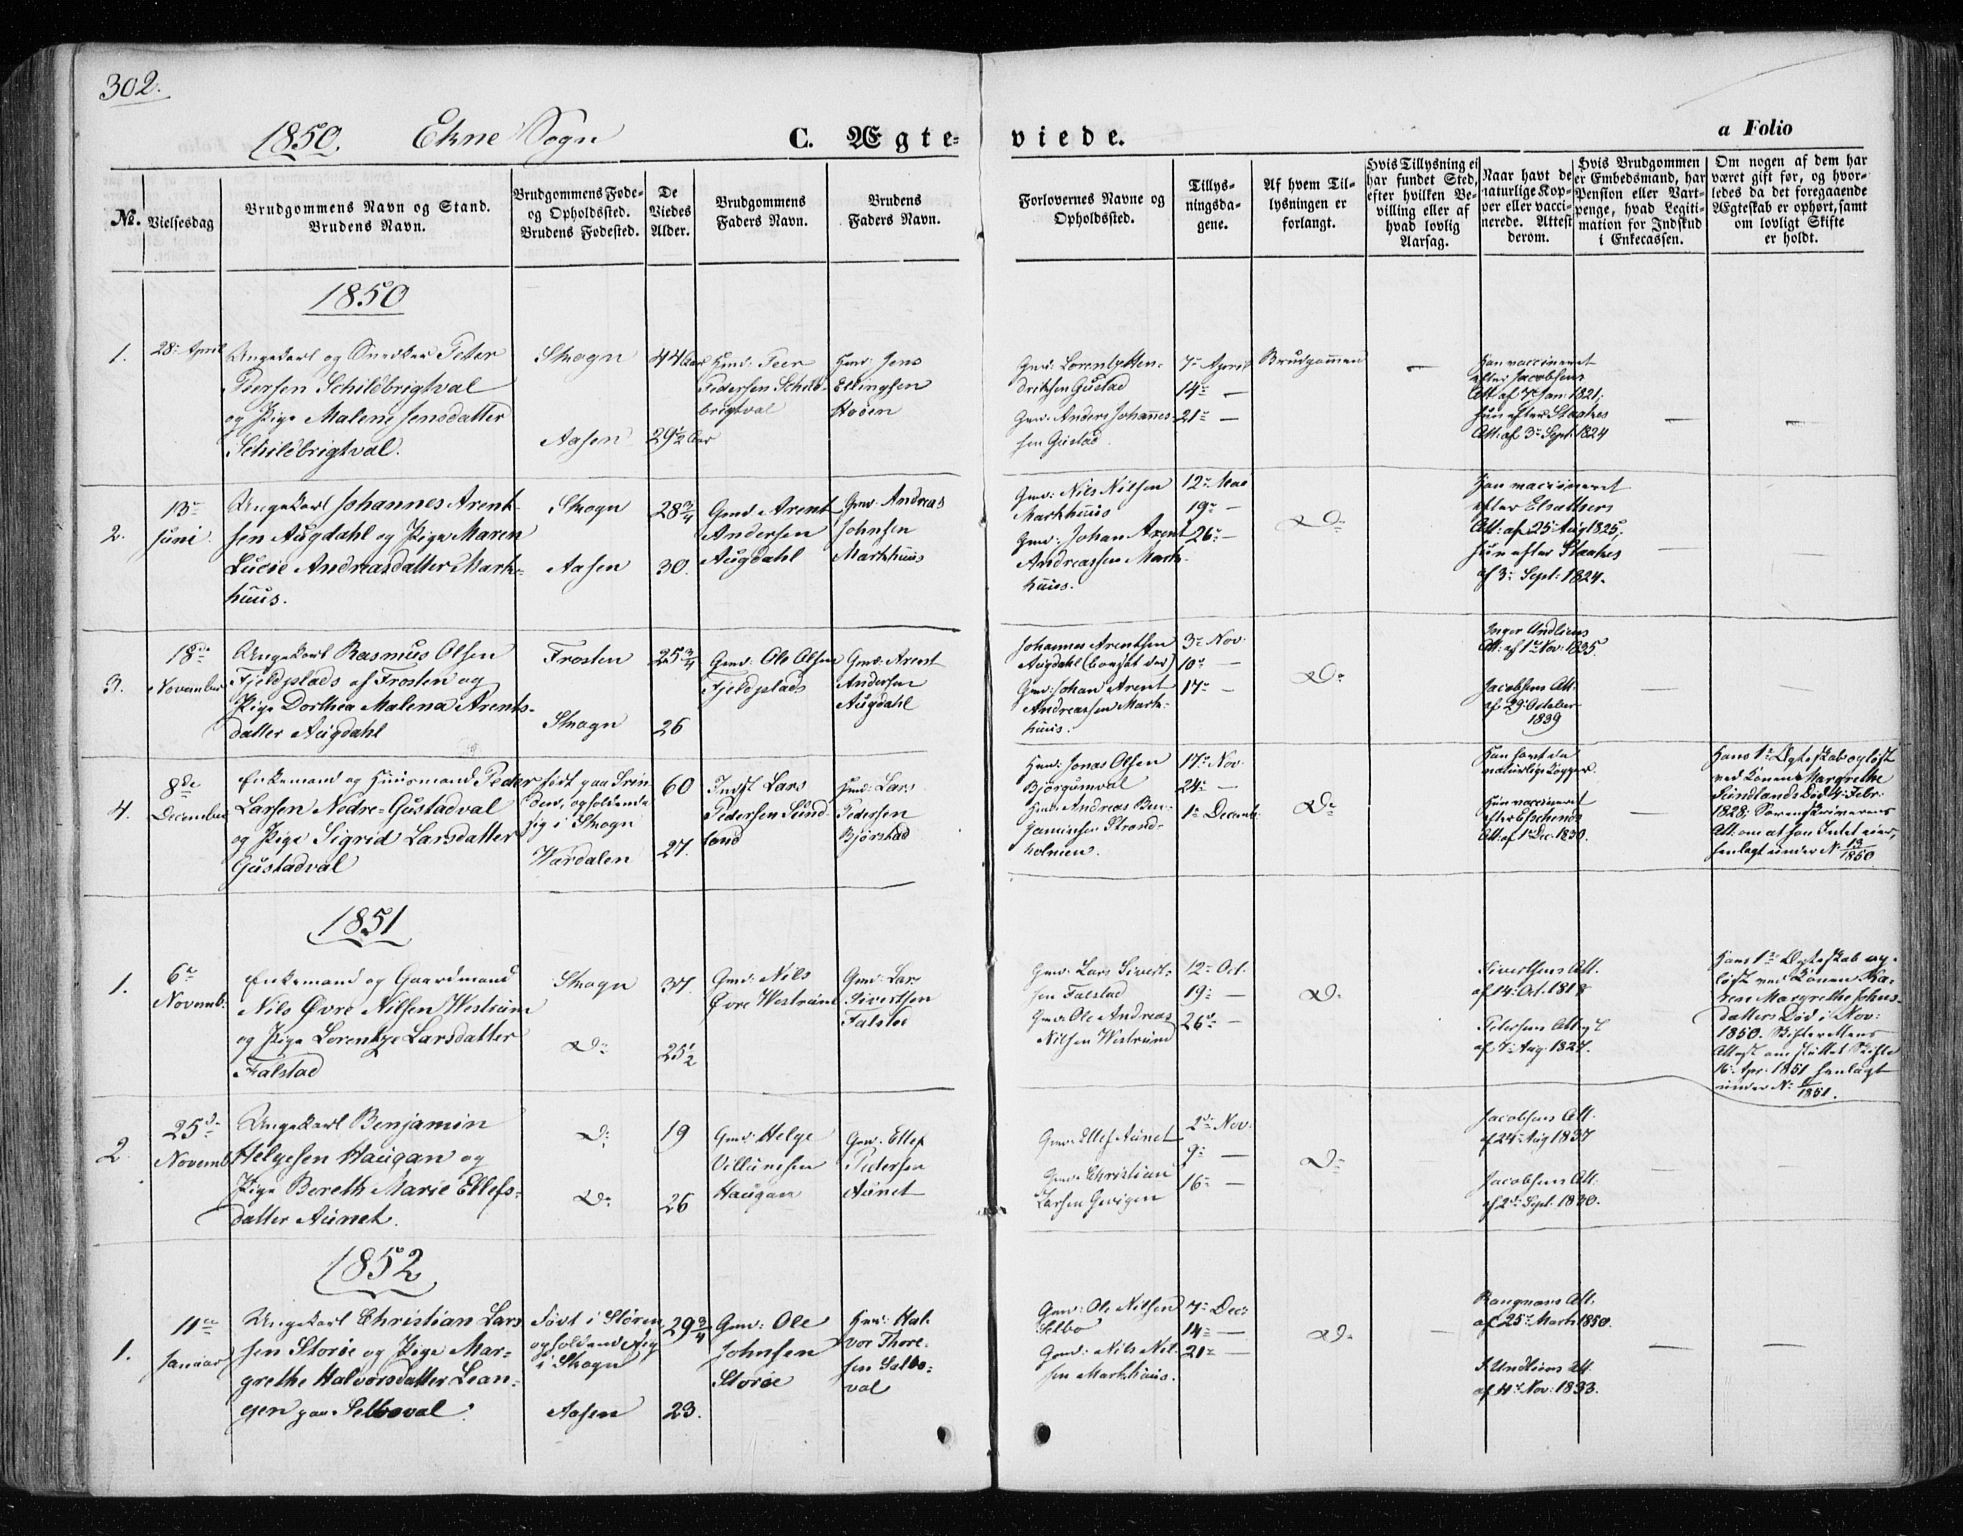 302.
1850. Ekne Sogn C. Ægte- viede. a Folio
No. Vielsesdag
Brudgommens Navn og Stand.
Brudens Navn.
Brudgommens Føde-
og Opholdssted.
Brudens Fødested.
De
Viedes
Alder.
Brudgommens
Faders Navn.
Brudens
Faders Navn.
Forlovernes Navne og
Opholdssted.
Tillys-
ningsda-
gene.
Af hvem Til-
lysningen er
forlangt.
Hvis Tillysning ei
har fundet Sted,
efter hvilken Be-
villing eller af
hvad lovlig
Aarsag.
Naar havt de
naturlige Kop-
per eller vacci-
nerede. Attest
derom.
Hvis Brudgommen
er Embedsmand, har
Pension eller Vart-
penge, hvad Legiti-
mation for Indskud
i Enkecassen.
Om nogen af dem har
været gift før, og hvor-
ledes da det foregaaende
Ægteskab er ophørt, samt
om lovligt Skifte
er holdt.
1850
1.
28de April
Ungekarl og Snedker Peter
Peersen Schilebrigtval
og Pige Malene Jensdatter
Schilebrigtval.
Skogn
Aasen
44 Aar
29½ Aar
Hmd: Peer
Pedersen Schile-
brigtval
Hmd: Jens
Ellingsen
Hoøen
Gmd: Lorents Hen-
driksen Gustad
Gmd: Anders Johannes-
sen Gustad
7de April
14de —
21de —
Brudgommen
—
Han vaccineret
efter Jacobsens
Att: af 7de Jan: 1821;
hun efter Staahes
Att: af 3de Sept: 1824
—
—
2.
13de
Juni
Ungekarl Johannes Arent-
sen Augdahl og Pige Maren
Lucie Andreasdatter Mark-
huus.
Skogn
Aasen
28¾
30.
Gmd Arent
Andersen
Augdahl
Gmd: Andreas
Johnsen
Markhuus
Gmd: Nils Nilsen
Markhuus
Gmd: Johan Arent
Andreassen Mark-
huus.
12te Mai
19de —
26de —
Do
Han vaccineret
efter Elsæthers
Att: af 25de Aug 1825,
hun efter Staahes
af 3de Sept: 1824.
—
—
3.
18de
November
Ungekarl Rasmus Olsen
Fjeldplads af Frosten og
Pige Dorthea Malena Arents-
datter Augdahl
Frosten
Skogn
25¾
26
Gmd: Ole Olsen
Fjeldplads
Gmd: Arent
Andersen
Augdahl
Johannes Arentsen
Augdahl
Gmd: Johan Arent
Andreassen Mark-
huus.
3de Nov.
10de —
17de —
Do
Inger Undliens
Att: af 1ste Nov: 1825
Jacobsens Att:
af 29 October
1839
—
—
4.
8de
December
Enkemand og Huusmand Peder
Larsen Nedre-Gustadval
og Pige Sigrid Larsdatter
Gustadval
født paa Srin
den, opholdende
sig i Skogn
Wærdalen
60
27.
Indst Lars
Pedersen Sund
land
Hmd: Lars
Pedersen
Bjørstad
Hmd: Jonas Olsen
Bjørgumval
Hmd: Andreas Ben-
jaminsen Strand-
kolnien.
17de Nov.
24de —
1ste Decemb.
Do
Han havt de
naturlige Kopper.
Hun vaccineret
efter Esschends
Att: af 1ste Dec: 1830.
—
Hans 1ste Ægteskab opløst
ved Konen Margrethe
Sundlands Død 4 Febr.
1828; Sorenskriverens
Att. om at han Intet eier,
henlagt under No 13/1850
1851
1.
6te
Novemb:
Enkemand og Gaardmand
Nils Øvre Nilsen Westrum
og Pige Lorentze Larsdatter
Falstad
Skogn
Do
37.
25½
Gmd: Nils
Øvre Westrum
Gmd: Lars
Sivertsen
Falstad
Gmd: Lars Sivert-
sen Falstad
Gmd: Ole Andreas
Nilsen Westrum
12te Oct.
19de —
26de —
Do
Sivertsens Att.
af 14de Oct. 1818
Petersens Att:
af 7de Aug: 1827.
—
Hans 1ste Ægteskab op-
løst ved Konen Ka-
rene Margrethe Johns-
datters Død i Nov:
1850. Skifterettens
Attest om sluttet Skifte
16de Apr: 1851 henlagt
under No /1851.
2.
25de
Novemb.
Ungekarl Benjamin
Helgesen Haugan og
Pige Bereth Marie Ellefs-
datter Aunet.
Do
Do
19
26
Gmd: Helge
Villumsen
Haugan
Gmd: Ellef
Pedersen
Aunet
Gmd: Ellef Aunet
Gmd: Christian
Larsen Hevigen
2den Nov.
9de —
16de —
Do
Jacobsens Att.
af 24de Aug 1837
Jacobsens Att.
af 2den Sept. 1830.
—
—
1852
1.
11te
Januar
Ungekarl Christian Lar-
sen Storøe og Pige Mar-
grethe Halvorsdatter Lean-
gen paa Selboval.
Født i Støren
opholdende sig
i Skogn
Aasen
29¾
23.
Gmd: Ole
Johnsen
Storøe
Hmd: Hal-
vor Thore-
sen Salbo-
val
Gmd: Ole Nilsen
Selbo
Gmd: Nils Nil-
sen Markhuus.
7de Dec:
14de —
21de —
Do
—
Rangnavs Att.
af 25de Marts 1850.
I. Undliens Att.
af 4de Nov: 1833.
—
—